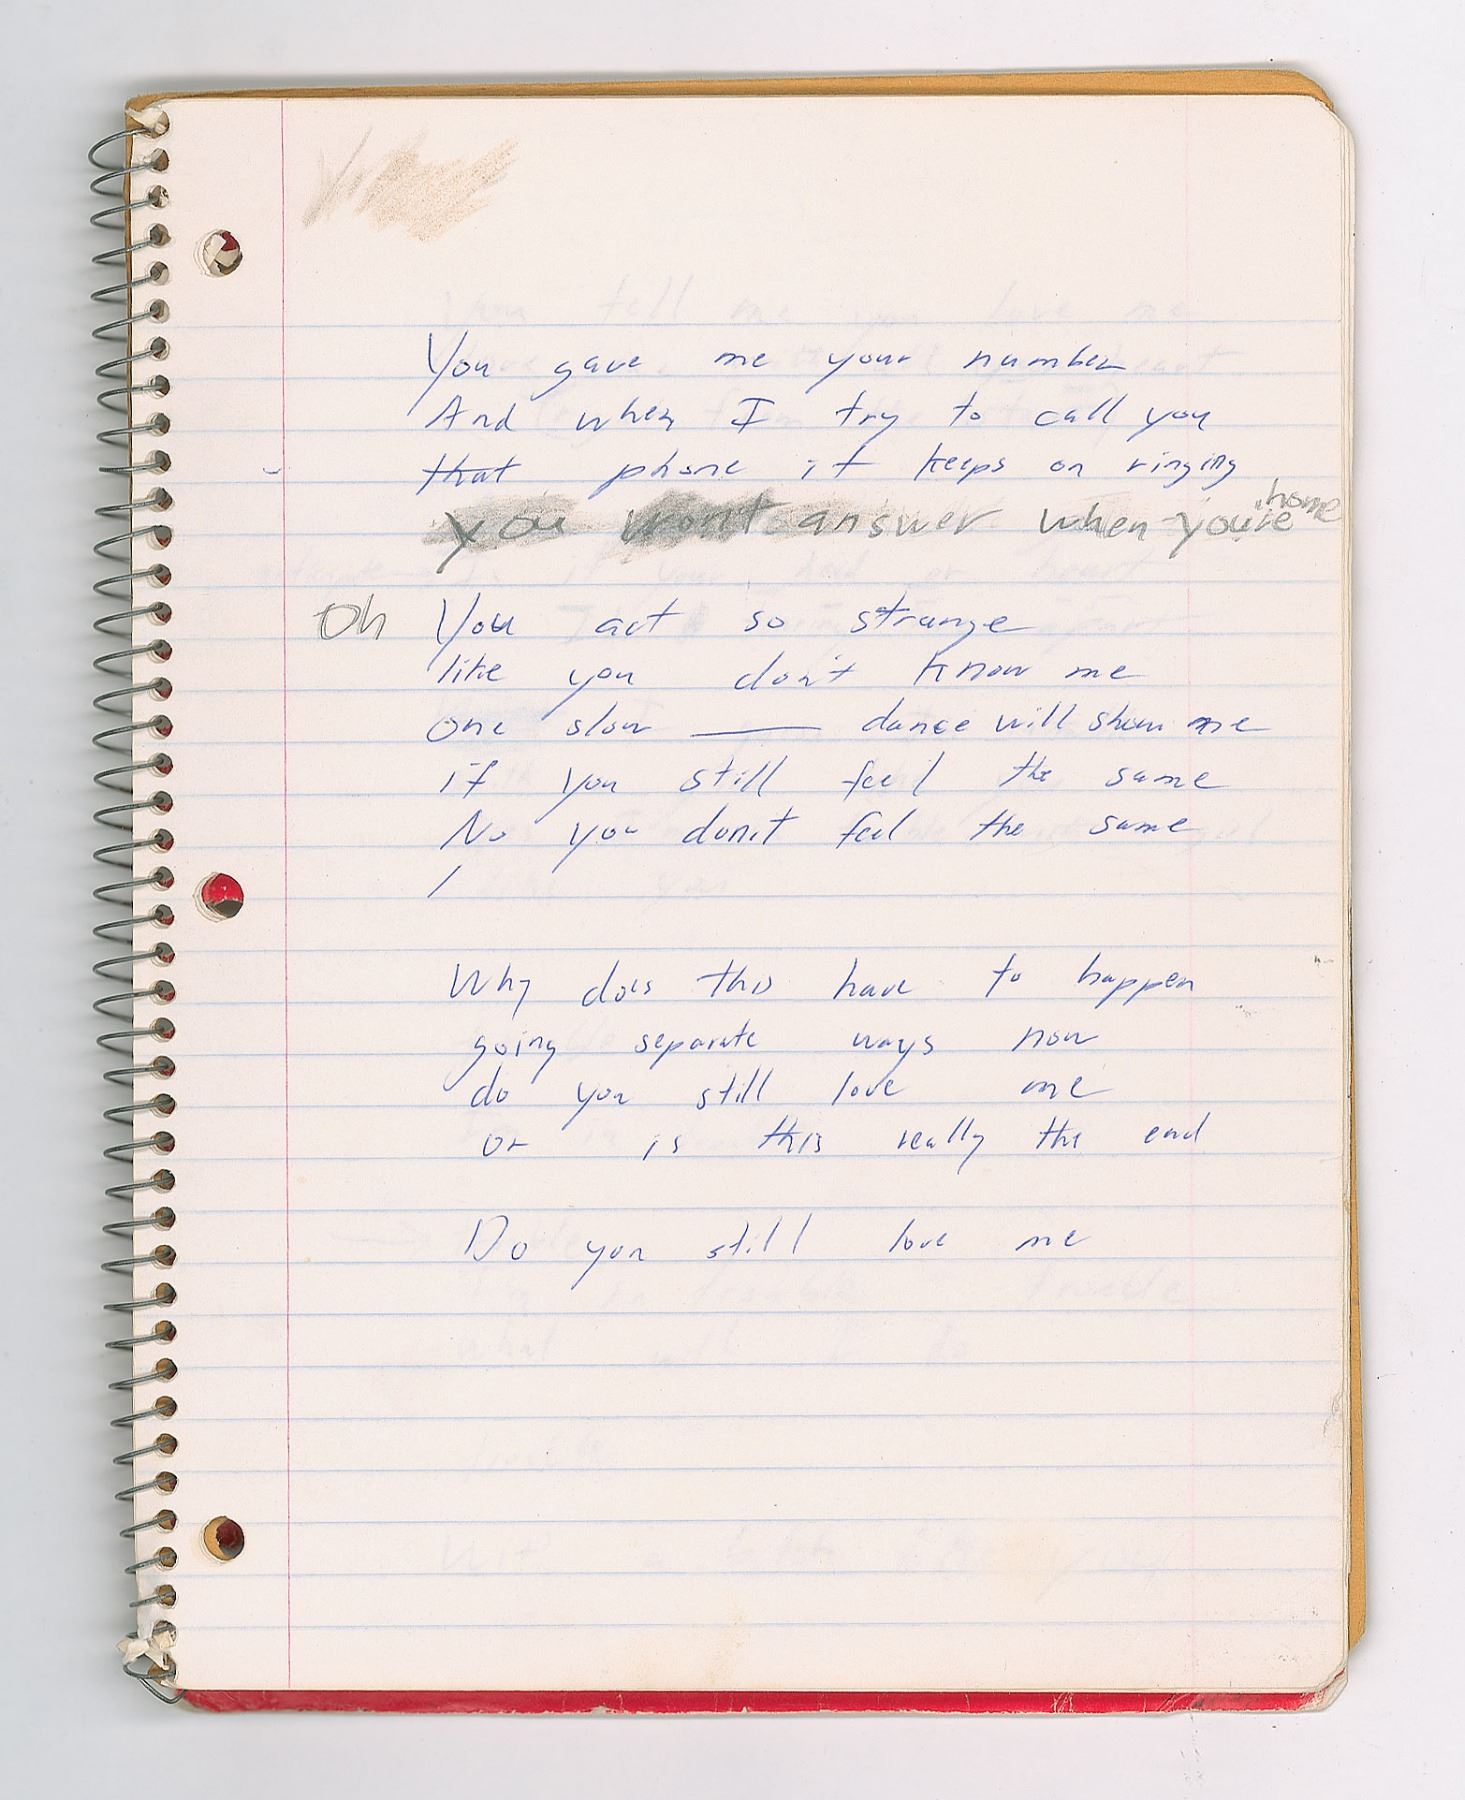 You gave me your number
And when I try to call you
that phone it keeps on ringing
you wont answer when you're home
Oh You act so strange
like you don't know me
one slow —— dance will show me
if you still feel the same
No you don't feel the same
Why does this have to happen
going separate ways now
do you still love me
or is this really the end
Do you still love me